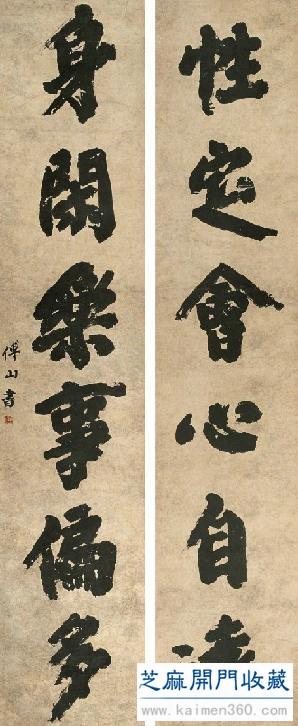 性定會心自
身閑樂事偏多
傅山書
芝麻開門收藏
www.kaimen360.com